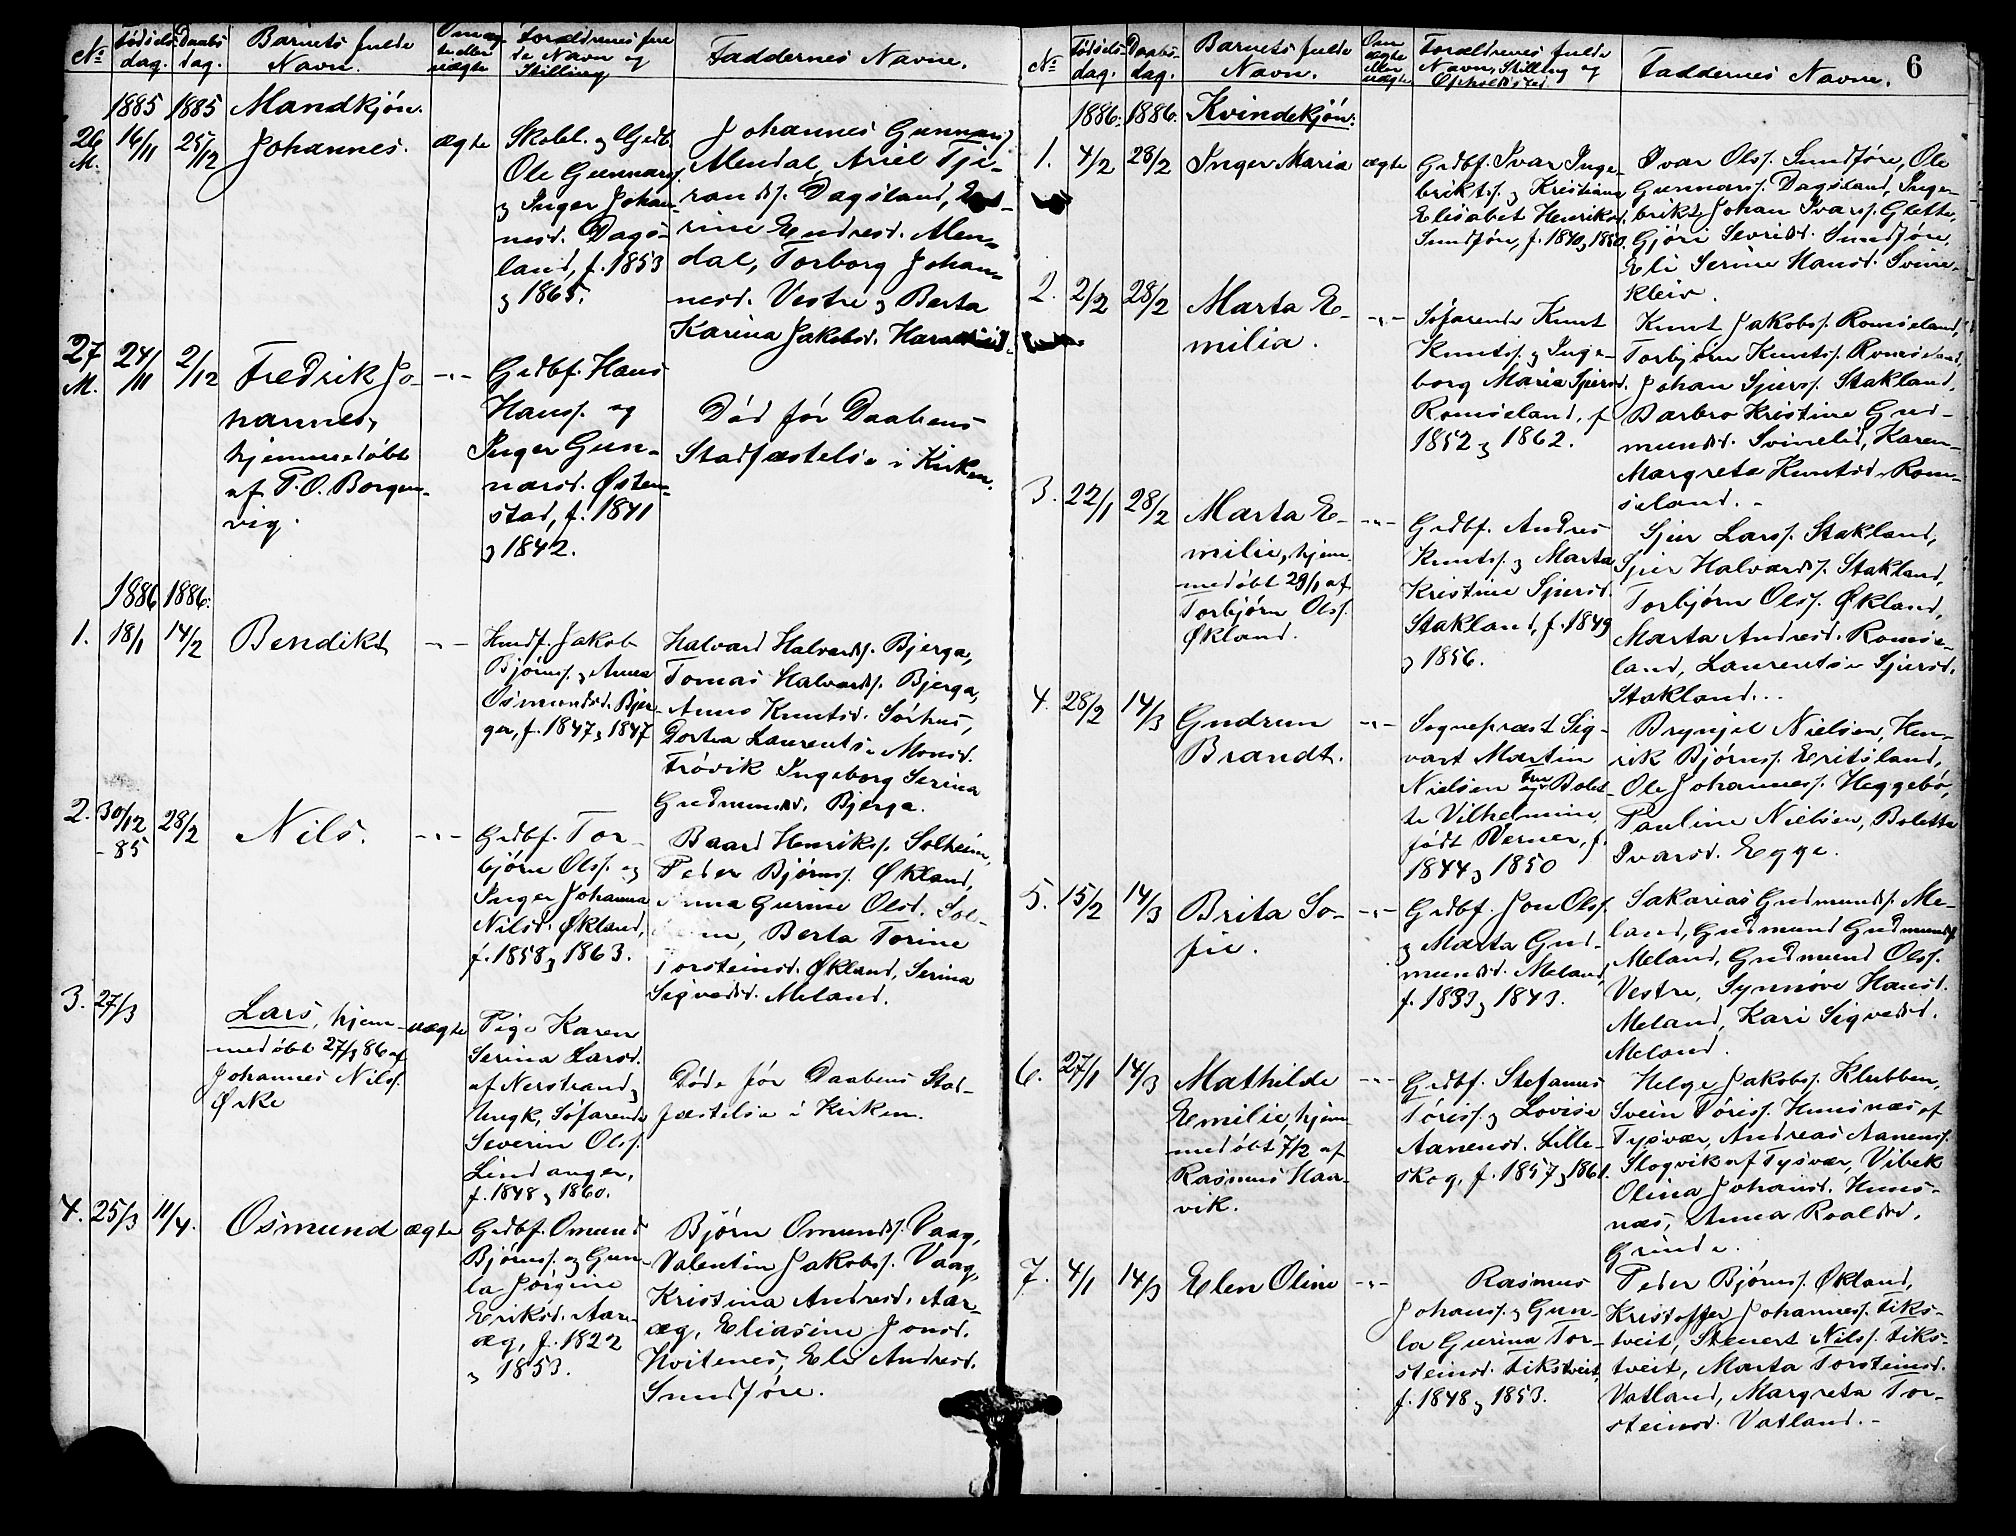 №
Fødsels-
dag.
Daabs
dag.
Barnets fulde
Navn.
Om æg-
te eller
uægte
Forældrenes ful-
de Navn og
Stilling
Faddernes Navne.
1885 1885 Mandkjön.
26
M.
16/11
25/12
Johannes.
ægte
Skolel. og Grdb.
Ole Gunnars.
og Inger Johan-
nesd. Dags-
land, f. 1853
og 1865.
Johannes Gunnars.
Alendal, Ariel Tje-
rands. Dagsland,
rine Endresd. Alen-
dal, Torborg Johan-
nesd. Vestre og Berta
Karina Jakobsd.
27
M.
24/11
2/12
Fredrik Jo-
hannes,
hjemmedøbt
af P. O. Borgen-
vig.
-"-
Grdbf. Hans
Hanss. og
Inger Gun-
narsd. Østen-
stad, f. 1841
og 1842.
Död för Daabens
Stadfæstelse i Kirken.
1886 1886.
1.
18/1
14/2
Bendikt
-"-
Husf. Jakob
Björns. og Anna
Osmundsd. Bjer-
ga, f. 1847 og 1847
Halvard Halvards. Bjerga,
Tomas Halvards. Bjerga,
Anna Knutsd. Sörhus,
Dortea Laurentse Monsd.
Frövik Ingeborg Serina
Gudmundsd. Bjerga.
2.
30/12
-85
28/2
Nils.
-"-
Grdbf. Tor-
björn Olss. og
Inger Johanna
Nilsd. Økland,
f. 1858 og 1863.
Baard Henriks. Solheim,
Peder Björns. Økland,
Gurine Olsd. Sol-
Berta Torine
Torsteinsd. Økland, Serina
Sigvedsd. Meland.
3.
27/3
Lars, hjem-
medøbt 27/3 86 af
Johannes Nilss.
Ørke
uægte
Pige Karen
Serina Larsd.
af Nerstrand og
Ungk. Söfarende
Severin Olss.
Lindanger,
f. 1848 og 1860.
Döde för Daabens Stad-
fæstelse i Kirken.
4.
25/3
11/4.
Osmund
ægte
Grdbf. Omund
Björns. og Gun-
la Jörgine
Eriksd. Aar-
æg, f. 1822
og 1853.
Björn Omunds. Vaag,
Valentin Jakobs. Vaag,
Kristina Andresd. Aar-
æg, Eliasine Jonsd.
Hvitenes, Eli Andresd.
Sundföre.
6
№
Födsels-
dag.
Daabs-
dag.
Barnets fulde
Navn.
Om
ægte
eller
uægte
Forældrenes fulde
Navn, Stilling og
Opholdsted.
Faddernes Navne.
1886. 1886. Kvindekjön.
1.
4/2
28/2
Inger Maria
ægte
Grdbf. Ivar Inge-
brikts. og Kristiana
Elisabet Henriksd.
Sundföre, f. 1840 og 1850.
Ivar Olss. Sundföre, Ole
Gunnars. Dagsland, Inge-
brikt Johan Ivars. Glette,
Gjöri Sevrisd. Sundföre,
Eli Serine Hansd. Svine-
kleiv.
2.
2/2
28/2
Marta E-
milia.
-"-
Söfarende Knut
Knuts. og Inge-
borg Maria Sjursd.
Romseland, f.
1852 og 1862.
Knut Jakobs. Romseland,
Torbjörn Knuts. Romseland,
Johan Sjurs. Stakland,
Barbro Kristine Gud-
mundsd. Svinelid, Karen
Margreta Knutsd. Rom-
seland. -
3.
22/1
28/2
Marta E-
milie, hjem-
medøbt 29/1 af
Torbjörn Olss.
Økland.
-"-
Grdbf. Andres
Knuts. og Marta
Kristine Sjursd.
Stakland, f. 1849
og 1856.
Sjur Larss. Stakland,
Sjur Halvards. Stakland,
Torbjörn Olss. Økland,
Marta Andresd. Romse-
land, Laurentse Sjursd.
Stakland.
4.
28/2
14/3
Gudrun
Brandt.
-"-
Sognepræst Sig-
vart Martin
Nielsen og Hu Bolet-
te Vilhelmine
født Werner, f.
1844 og 1850
Brynjel Nielsen, Hen-
rik Björns. Eritsland,
Ole Johanness. Heggebö,
Pauline Nielsen, Boletta
Ivarsd. Egge.
5.
15/2
14/3
Brita So-
fie.
-"-
Grdbf. Jon Olss.
og Marta Gud-
mundsd. Meland,
f. 1833 og 1843.
Sakarias Gudmunds. Me-
land, Gudmund Gudmunds.
Meland, Gudmund Olss.
Vestre, Synnöve Hansd.
Meland, Kari Sigvedsd.
Meland.
6.
27/1
14/3
Mathilde
Emilie, hjem-
medøbt 7/2 af
Rasmus Haa-
vik.
-"-
Grdbf. Stefanus
Töriss. og Lovise
Aanensd. Lille-
skog, f. 1857 og 1861.
Helge Jakobs. Klubben,
Svein Töriss. Hunsnæs af
Tysvær, Andreas Aanens.
Slogvik af Tysvær, Vibek
Olina Johansd. Huns-
næs, Anna Roaldsd.
Grinde.
7.
4/1
14/3
Elen Oline
-"-
Rasmus
Johans. og Gun-
la Gurina Tor-
steinsd. Fikstveit,
f. 1848 og 1853.
Peder Björns. Økland,
Kristoffer Johanness. Fiks-
tveit, Steners Nilss. Fiks-
tveit, Marta Torsteinsd.
Vatland, Margreta Tor-
steinsd. Vatland. -